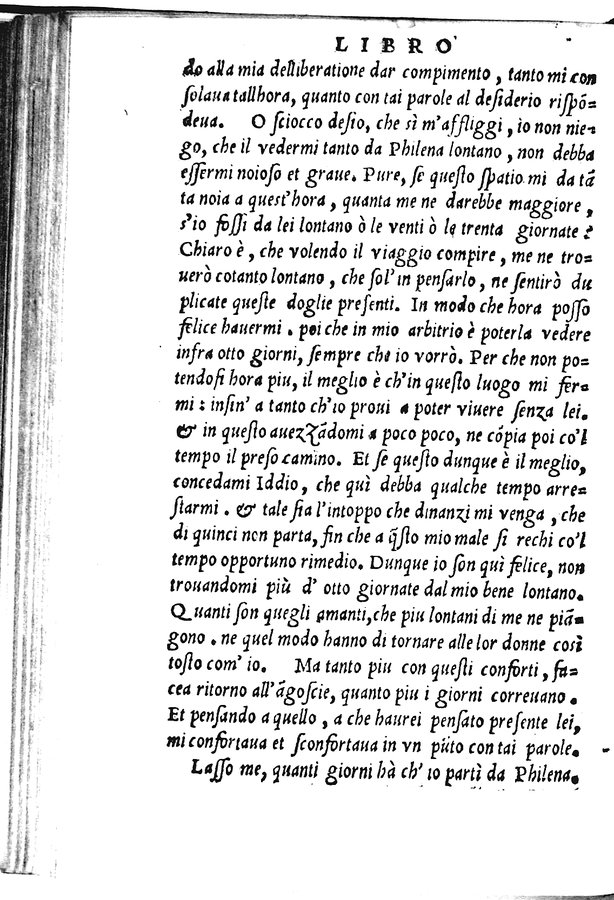 LIBRO
do alla mia deliberatione dar compimento, tanto mi con
ſolaua tallhora, quanto con tai parole al deſiderio riſpõ-
deua. O ſciocco deſio, che sì m'affliggi, io non nie-
go, che il vedermi tanto da Philena lontano, non debba
eſſermi noioſo et graue. Pure, ſe queſto ſpatio mi da tã
ta noia a queſt'hora, quanta me ne darebbe maggiore,
s'io foſſi da lei lontano ò le venti ò le trenta giornate?
Chiaro è, che volendo il viaggio compire, me ne tro-
uerò cotanto lontano, che ſol'in penſarlo, ne ſentirò du
plicate queſte doglie preſenti. In modo che hora poſſo
felice hauermi. poi che in mio arbitrio è poterla vedere
infra otto giorni, ſempre che io vorrò. Per che non po-
tendoſi hora piu, il meglio è ch'in queſto luogo mi fer-
mi: inſin' a tanto ch'io proui a poter viuere ſenza lei.
& in queſto auezzãdomi a poco poco, ne cópia poi co'l
tempo il preſo camino. Et ſe queſto dunque è il meglio,
concedami Iddio, che quì debba qualche tempo arre-
ſtarmi. & tale ſia l'intoppo che dinanzi mi venga, che
di quinci non parta, fin che a q̃ſto mio male ſi rechi co'l
tempo opportuno rimedio. Dunque io ſon quì felice, non
trouandomi più d' otto giornate dal mio bene lontano.
Quanti ſon quegli amanti, che piu lontani di me ne piã-
gono. ne quel modo hanno di tornare alle lor donne così
toſto com' io. Ma tanto piu con queſti conforti, fa-
cea ritorno all'ãgoſcie, quanto piu i giorni correuano.
Et penſando a quello, a che haurei penſato preſente lei,
mi confortaua et ſconfortaua in vn pũto con tai parole.
Laſſo me, quanti giorni hà ch' io partì da Philena.